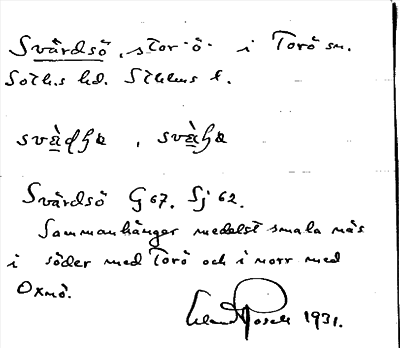 Svärdsö, stor ö i Torö sn.
Soth.s hd. Sthlms l.
Svärdsö G 67. Sj 62.
Sammanhänger medelst smala näs
i söder med Torö och i norr med
Oxnö.
1931.